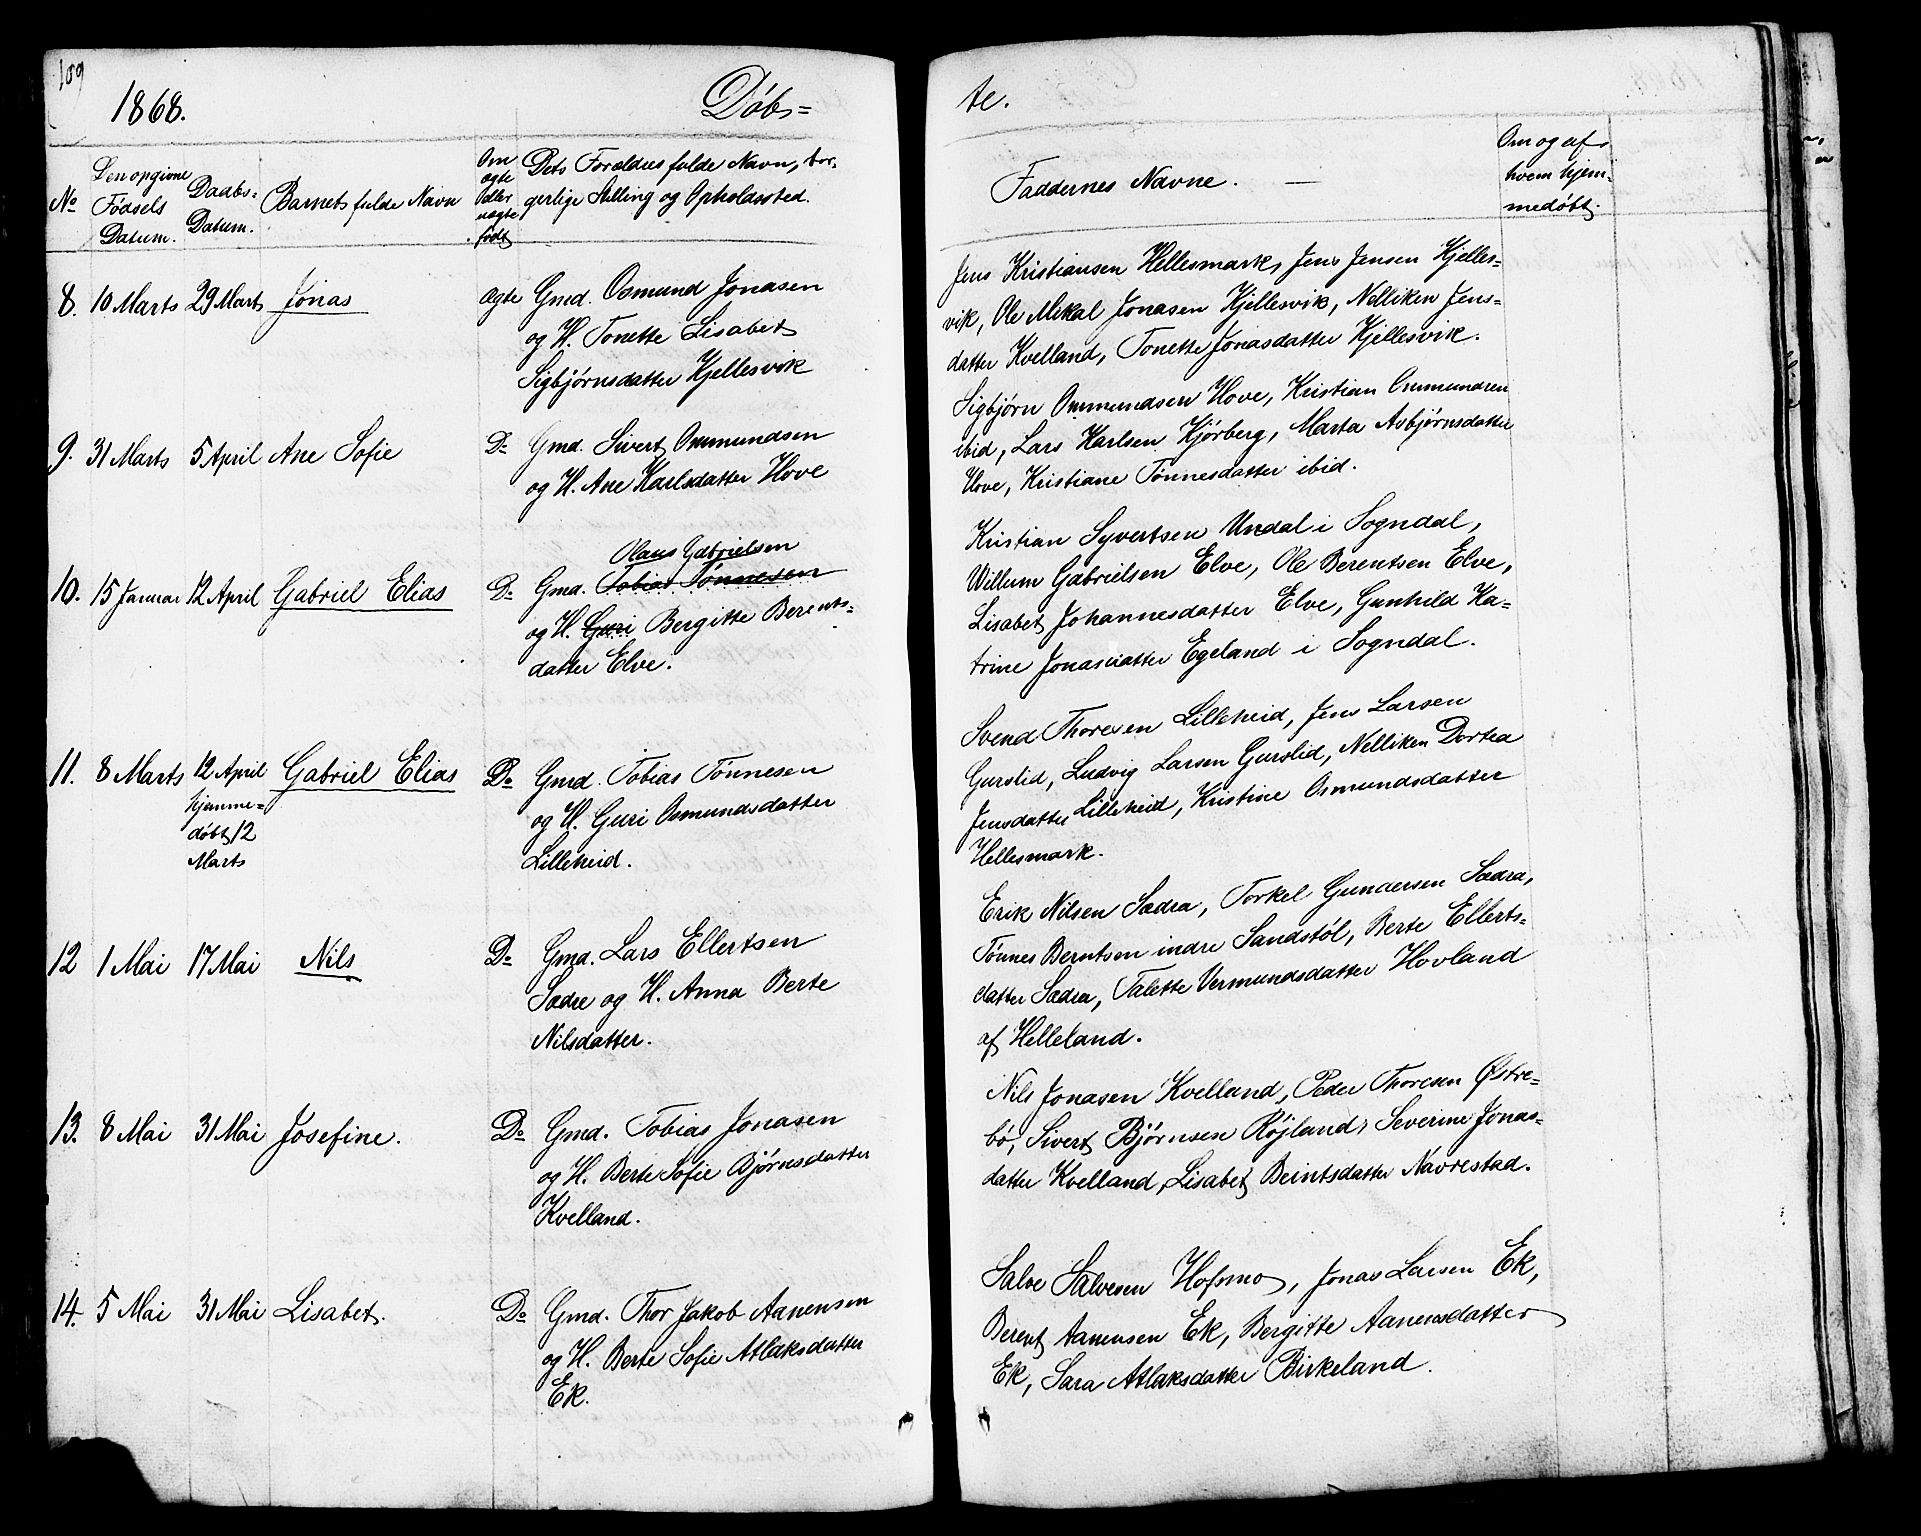 109
1868.
Døbs=
te.
No
Den opgivne
Fødsels
Datum.
Daabs-
Datum.
Barnets fulde Navn
Om
ægte
eller
uægte
født
Dets Forældres fulde Navn, bor-
gerlige Stilling og Opholdssted.
Faddernes Navne. —
Om og af
hvem hjem-
medøbt.
8. 10 Marts 29 Marts Jonas ægte Gmd. Osmund Jonasen
og H. Tonette Lisabet
Sigbjørnsdatter Kjellesvik
Jens Kristiansen Hellesmark, Jens Jensen Kjelles-
vik, Ole Mikal Jonasen Kjellesvik, Nelliken Jens-
datter Kvelland, Tonette Jonasdatter Kjellesvik.
9. 31 Marts 5 April Ane Sofie Do Gmd. Sivert Ommundsen
og H. Ane Karlsdatter Hove
Sigbjørn Ommundsen Hove, Kristian Ommundsen
ibid, Lars Karlsen Kjørberg, Marta Asbjørnsdatter
Hove, Kristiane Tønnesdatter ibid.
Olaus Gabrielsen
10. 15 Januar 12 April Gabriel Elias Do Gmd. Tobias Tønnesen
og H. Guri Bergitte Berents-
datter Elve.
Kristian Syvertsen Undal i Sogndal,
Willum Gabrielsen Elve, Ole Berentsen Elve,
Lisabet Johannesdatter Elve, Gunhild Ka-
trine Jonasdatter Egeland i Sogndal.
11. 8 Marts 12 April Gabriel Elias Do Gmd. Tobias Tønnesen
hjemme-
døbt 12
Marts
og H. Guri Osmundsdatter
Lilleheid.
Svend Thoresen Lilleheid, Jens Larsen
Gurslid, Ludvig Larsen Gurslid, Nelliken Dortea
Jensdatter Lilleheid, Kristine Osmundsdatter
Hellesmark.
12 1 Mai 17 Mai Nils Do Gmd. Lars Ellertsen
Sædre og H. Anna Berte
Nilsdatter.
Erik Nilsen Sædra, Torkel Gundersen Sædra,
Tønnes Berntsen indre Sandstøl, Berte Ellerts-
datter Sædra, Talette Vermundsdatter Hovland
af Helleland.
13. 8 Mai 31 Mai Josefine. Do Gmd. Tobias Jonasen
og H. Berte Sofie Bjørnsdatter
Kvelland.
Nils Jonasen Kvelland, Peder Thoresen Østre-
bø, Sivert Bjørnsen Røjland, Severine Jonas-
datter Kvelland, Lisabet Beintsdatter Navrestad.
14. 5 Mai 31 Mai Lisabet. Do Gmd. Thor Jakob Aanensen
og H. Berte Sofie Atlaksdatter
Ek.
Salve Salvesen Hofsmo, Jonas Larsen Ek,
Berent Aanensen Ek, Bergitte Aanensdatter
Ek, Sara Atlaksdatter Birkeland.